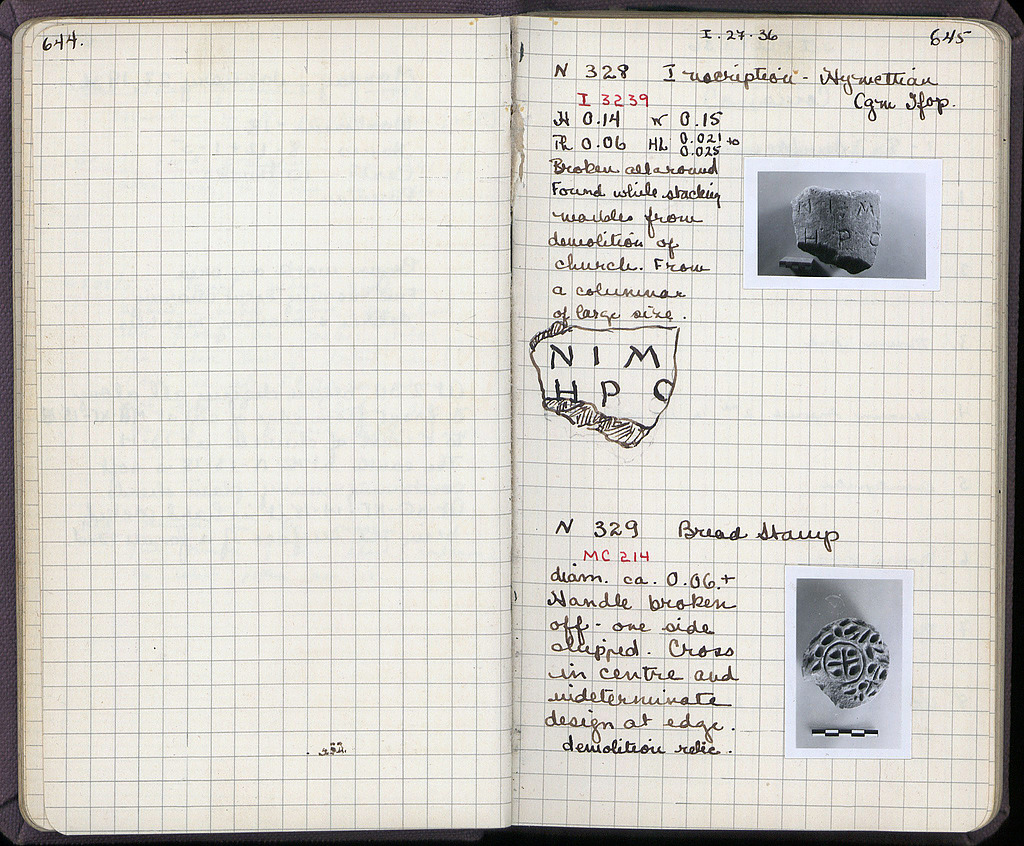 644.
I · 27 · 36
645
N 328 Inscription - Hymettian
I 3239
H 0.14 W 0.15
Th 0.06 HL 0.021 to
0.025
Broken all around
Found while stacking
marbles from
demolition of
church. From
a columnar
of large size.
N I M
H P C
N 329 Bread Stamp
MC 214
diam. ca. 0.06.+
Handle broken
off - one side
chipped. Cross
in centre and
indeterminate
design at edge.
demolition relic.